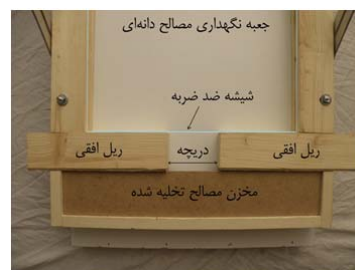 جعبه نگهداری مصالح دانه‌ای
شیشه ضد ضربه
ریل افقی
دریچه
ریل افقی
مخزن مصالح تخلیه شده